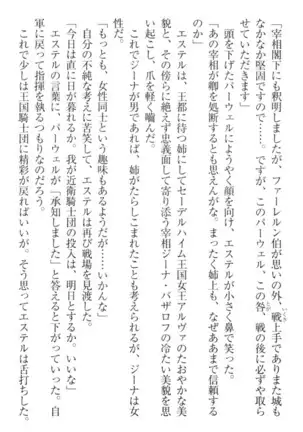 「宰相閣下にも釈明しましたが、ファーレルン伯が思いの外、戦上手でありまた城も
なかなか堅固ですので……。ですが、このパーウェル、この咎、戦の後に必ずや取ら
せていただきます」
頭を下げたパーウェルにようやく顔を向け、エステルが小さく鼻で笑った。
「あの宰相が卿を処断するとも思えんがな。まったく姉上も、なぜああまで信頼する
のか」
エステルは、王都に待つ姉にしてセーデルハイム王国女王アルヴァのたおやかな美
貌と、その傍らに絶えず忠義面して寄り添う宰相ジーナ・バザロフの冷たい美貌を思
い起こし、爪を軽く噛んだ。
これでジーナが男であれば、姉がたらしこまれたことも考えられるが、ジーナは女
性だ。
「もっとも、女性同士という趣味もあるようだが……いかんな」
自分の不純な考えに苦笑して、エステルは再び戦場を見渡した。
「今日は直に日が暮れるか。我が近衛騎士団の投入は、明日とするか。いいな」
エステルの言葉に、パーウェルが「承知しました」と答えると下がっていった。自
軍に戻って指揮を執るつもりなのだろう。
これで少しは王国騎士団に精彩が戻ればいいが。そう思ってエステルは舌打ちした。